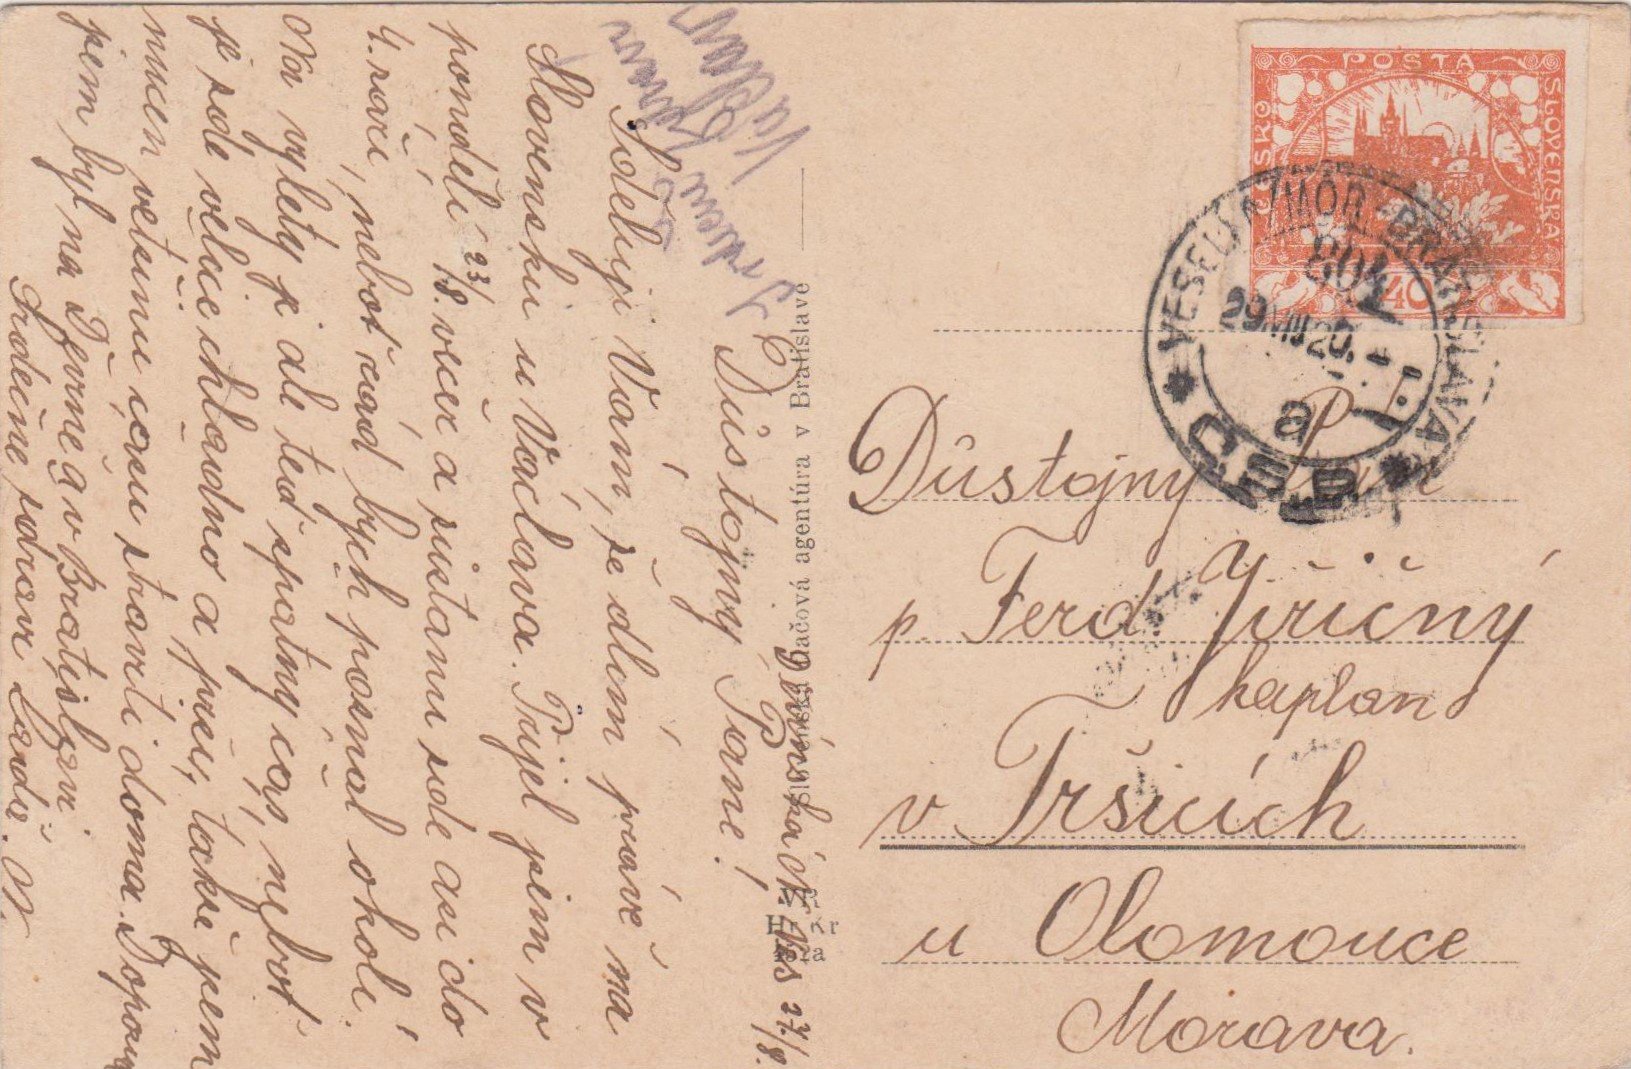 POŠTA
ČESKO
SLOVENSKÁ
40
VESELÍ n/MOR - BRATISLAVA
804
29.VIII.20.
a
ČSP
Důstojný Pan
p. Ferd. Jiřičný
kaplan
v Tršicích
u Olomouce
Morava.
Slovenská tlačová agentúra v Bratislave
27/8.
Důstojný Pane!
Sděluji Vám, že dlem právě na
Slovensku u Václava. Přijel jsem v
pondělí 23/8. večer a zůstanu zde asi do
4. září, neboť rád bych poznal okolí.
Na výlety je ale teď špatný čas, neboť
je zde velice chladno a prší, takže jsem
nucen většinu času stráviti doma. Dopol.
jsem byl na Děvíně a v Bratislavi.
Srdečně zdraví
Srdečně
Václav